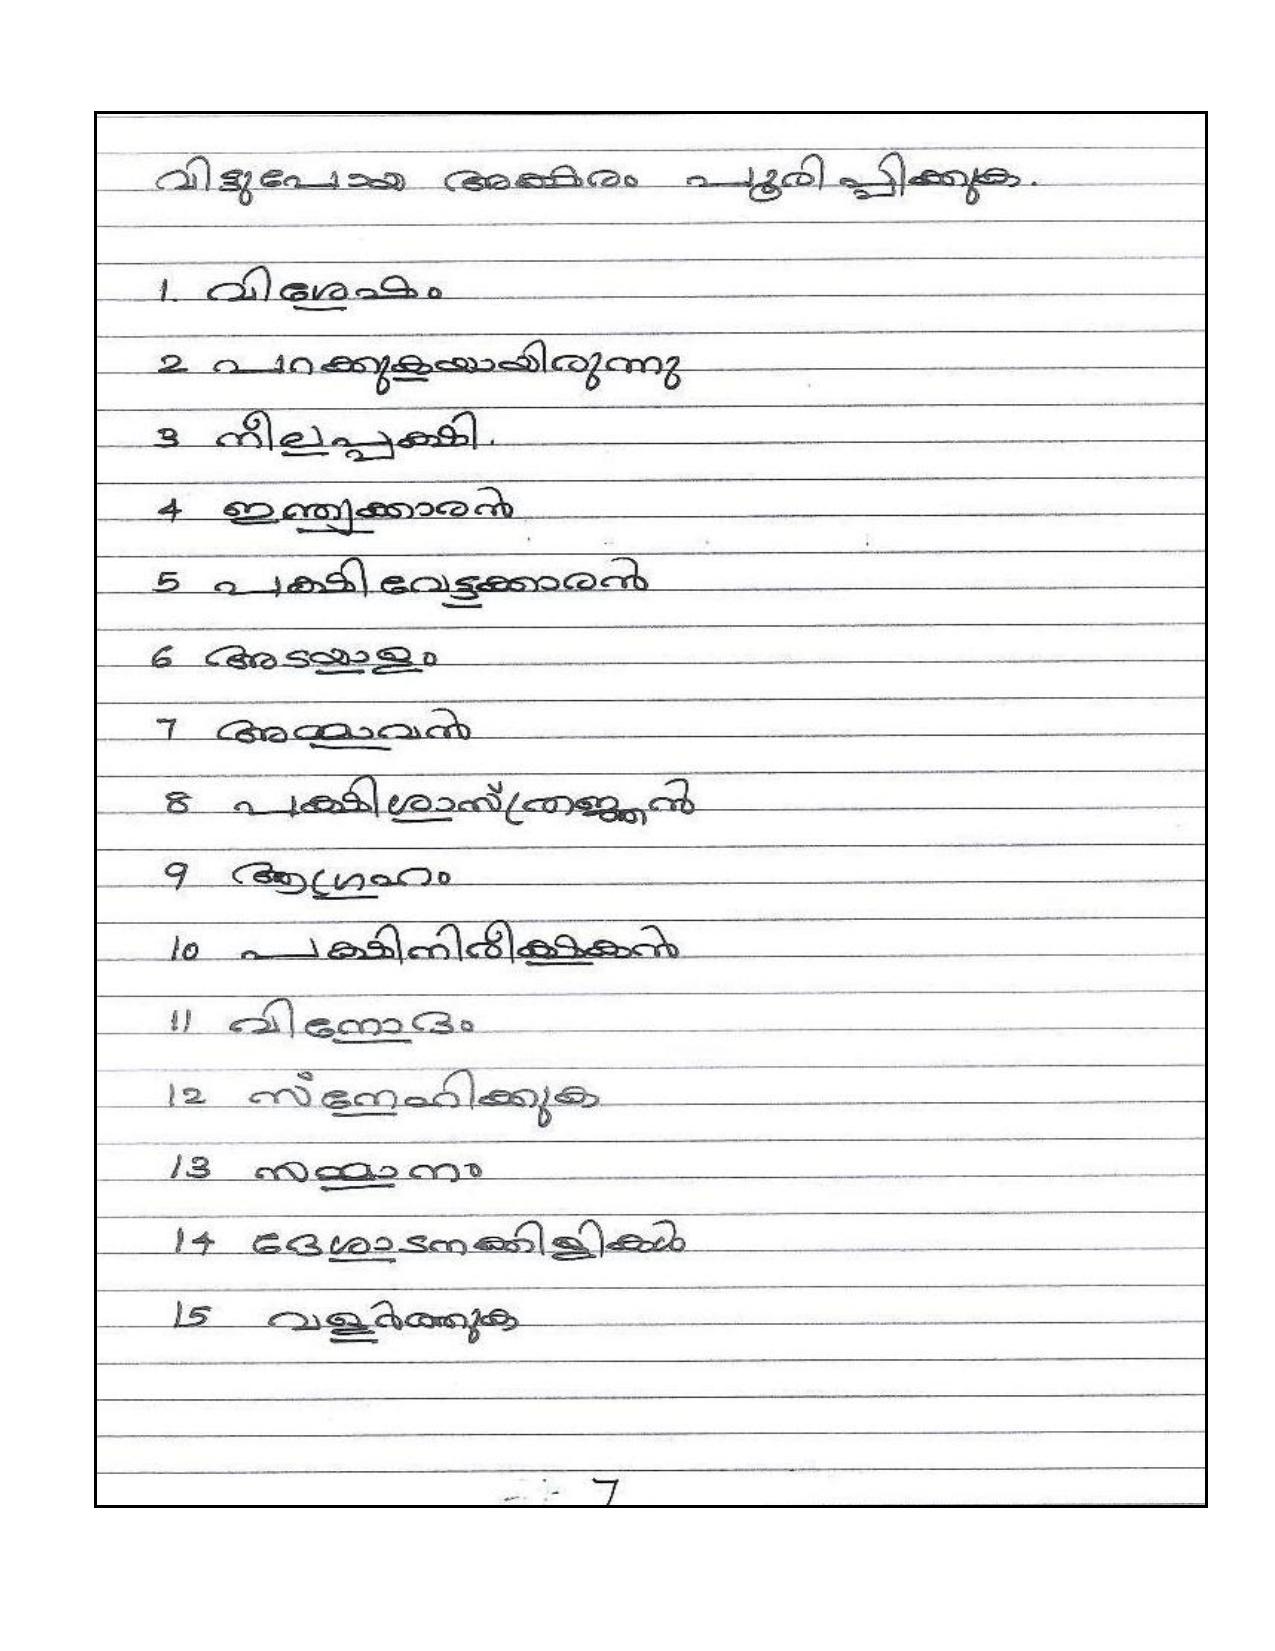 വിട്ടുപോയ അക്ഷരം പൂരിപ്പിക്കുക.
1. വിശേഷം
2 പറക്കുകയായിരുന്നു
3 നീലപ്പക്ഷി.
4 ഇന്ത്യക്കാരൻ
5 പക്ഷിവേട്ടക്കാരൻ
6 അടയാളം
7 അമ്മാവൻ
8 പക്ഷിശാസ്ത്രജ്ഞൻ
9 ആഗ്രഹം
10 പക്ഷിനിരീക്ഷകൻ
11 വിനോദം
12 സ്നേഹിക്കുക
13 സമ്മാനം
14 ദേശാടനക്കിളികൾ
15 വളർത്തുക
7